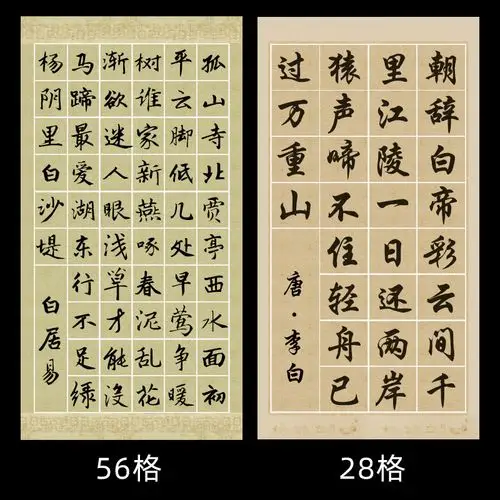 孤山寺北贾亭西水面初
平云脚低几处早莺争暖
树谁家新燕啄春泥乱花
渐欲迷人眼浅草才能没
马蹄最爱湖东行不足绿
杨阴里白沙堤
白居易
56格
朝辞白帝彩云间千
里江陵一日还两岸
猿声啼不住轻舟已
过万重山
唐·李白
28格